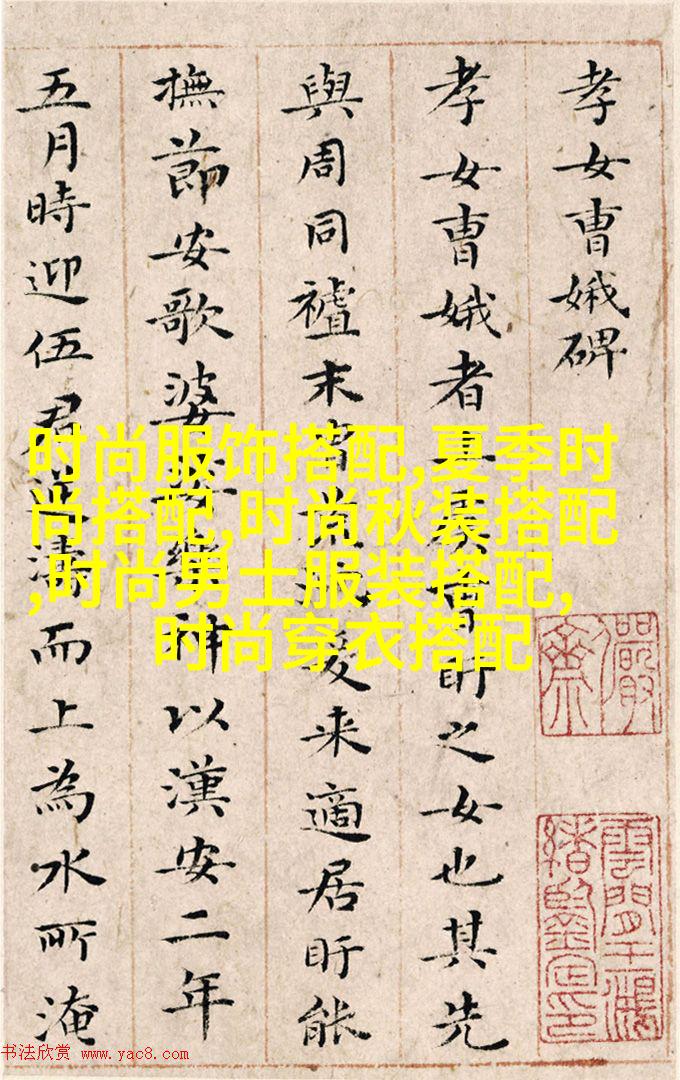 孝女曹娥碑
孝女曹娥者盱之女也其先
與周同末爰來適居盱能
撫節安歌婆娑樂神以漢安二年
五月時迎伍君逆濤而上為水所淹
时尚服饰搭配,夏季时
尚搭配,时尚秋装搭配
,时尚男士服装搭配,
时尚穿衣搭配
儼齋
雲間王鴻緒鑒定印
书法欣赏 www.yac8.com